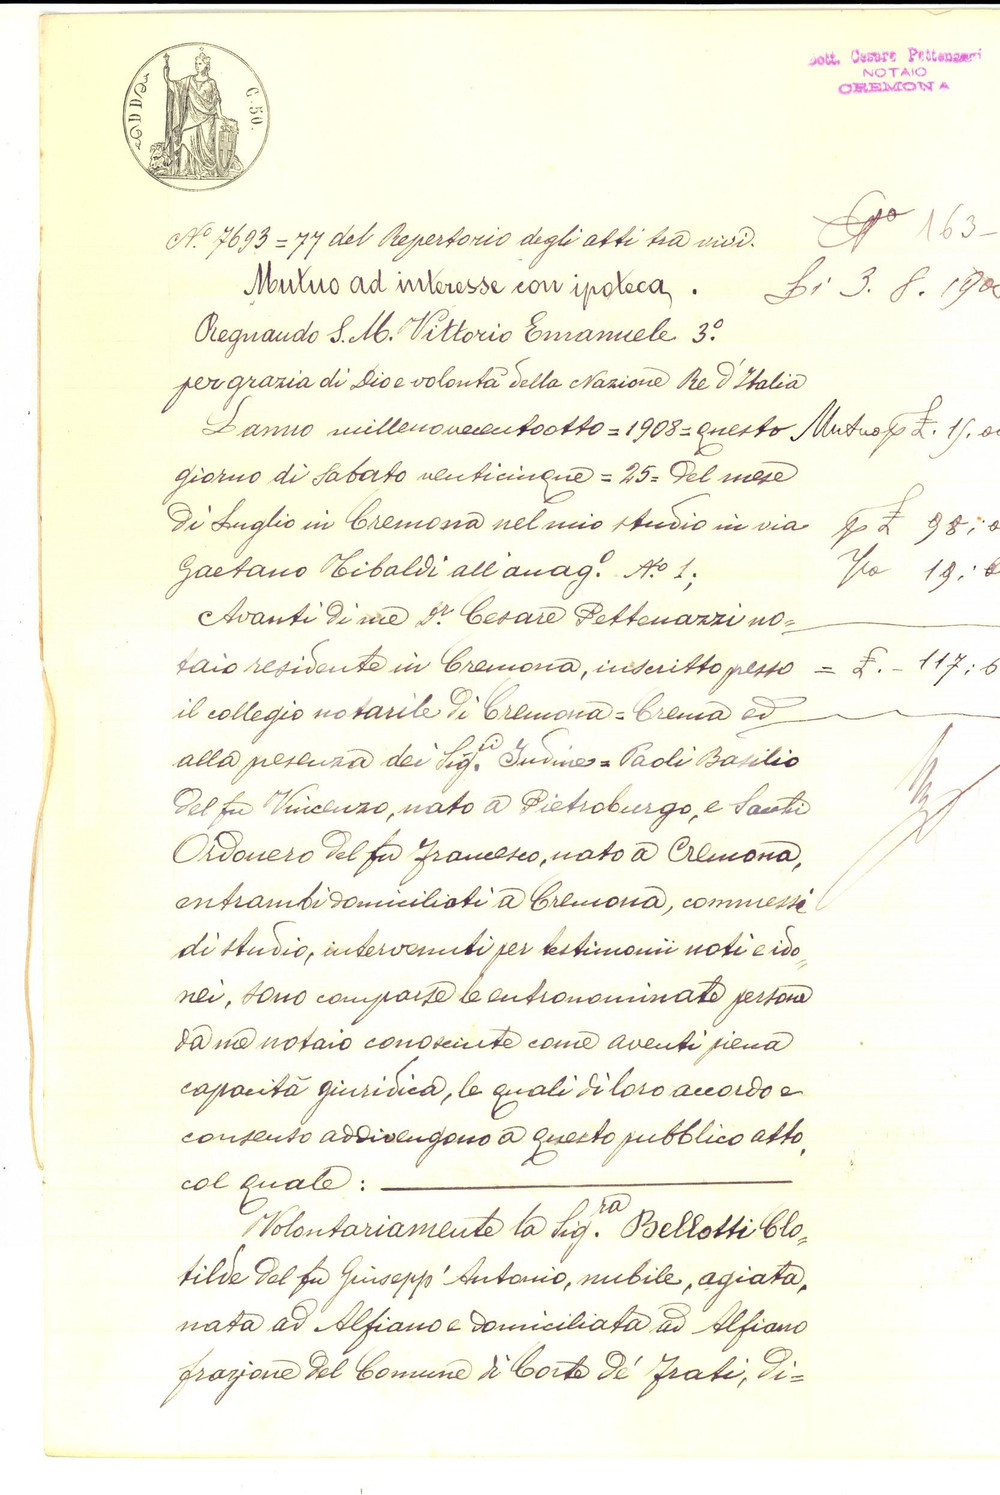 Dott. Cesare Pettenazzi
NOTAIO
CREMONA
C. 50.
No 163-
N.o 7693=77 del Repertorio degli atti tra vivi.
Mutuo ad interesse con ipoteca.
Li 3. 8. 190
Regnando S. M. Vittorio Emanuele 3o.
per grazia di Dio e volontà della Nazione Re d'Italia
L'anno millenovecentootto = 1908 = questo
Mutuo p £. 15.
giorno di Sabato venticinque = 25 = del mese
di Luglio in Cremona nel mio studio in via
p £ 98;
Gaetano Tibaldi all'anag.o No 1;
19;
Avanti di me Dr Cesare Pettenazzi no=
taio residente in Cremona, inscritto presso
= £. - 117:
il collegio notarile di Cremona = Crema ed
alla presenza dei Sig.ri Iudine = Paoli Basilio
del fu Vincenzo, nato a Pietroburgo, e Santi
Ordonero del fu Francesco, nato a Cremona,
entrambi domiciliati a Cremona, commessi
di studio, intervenuti per testimonii noti e ido=
nei, sono comparse le entronominate persone
da me notaio conosciute come aventi piena
capacità giuridica, le quali di loro accordo e
consenso addivengono a questo pubblico atto,
col quale:
Volontariamente la Sig.ra Bellotti Clo=
tilde del fu Giusepp' Antonio, nubile, agiata,
nata ad Alfiano e domiciliata ad Alfiano
frazione del Comune di Corte de' Frati, di=